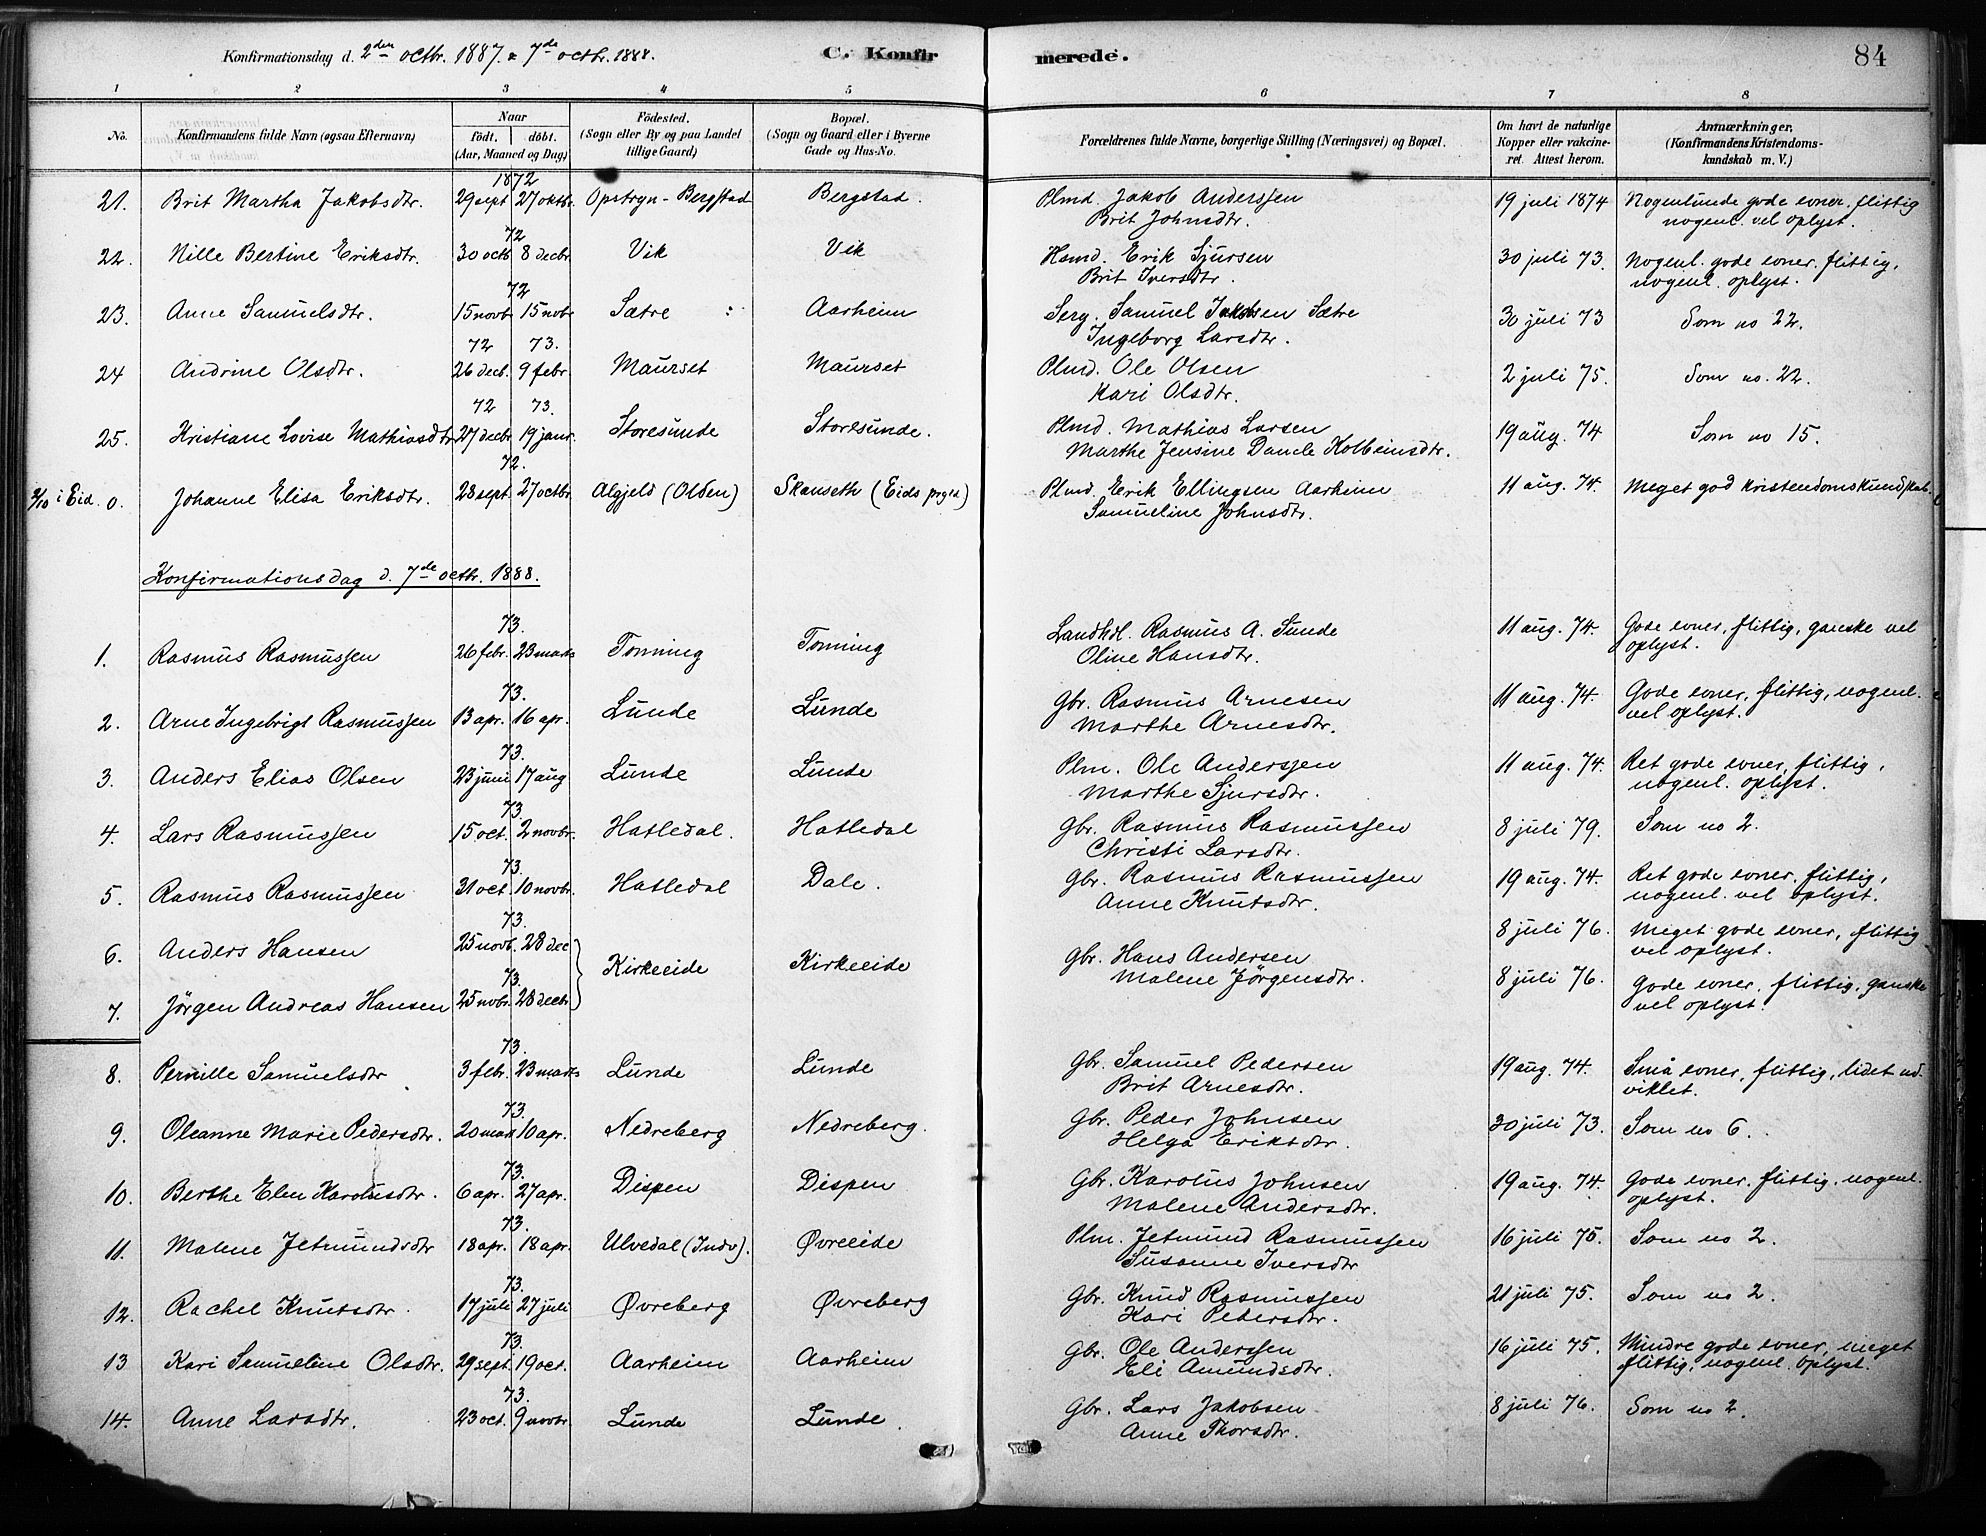 Konfirmationsdag d. 2den octbr. 1887. & 7de octbr. 1888.
C. Konfirmerede.
84
1 2 3 4 5 6 7 8
No. Konfirmandens fulde Navn (ogsaa Efternavn) Naar födt. döbt. (Aar, Maaned og Dag) Födested. (Sogn eller By og paa Landet tillige Gaard) Bopæl. (Sogn og Gaard eller i Byerne Gade og Hus-No. Forældrenes fulde Navne, borgerlige Stilling (Næringsvei) og Bopæl. Om havt de naturlige Kopper eller vakcineret. Attest herom. Anmærkninger. (Konfirmandens Kristendomskundskab m. V.)
1872
21. Brit Martha Jakobsdtr. 29 sept 27 oktbr. Opstryn - Bergstad Bergstad. Plmd. Jakob Anderssen 19 juli 1874 Nogenlunde gode evner, flittig
Brit Johnsdtr. nogenl. vel oplyst.
72
22. Nille Bertine Eriksdtr. 30 octb 8 decbr Vik Vik Hsmd. Erik Sjursen 30 juli 73. Nogenl. gode evner. flittig,
Brit Iversdtr. nogenl. oplyst.
72
23. Anne Samuelsdtr. 15 novb 15 novb Sætre : Aarheim Serg. Samuel Jakobsen Sætre 30 juli 73 Som no 22.
Ingeborg Larsdtr.
72 73.
24 Andrine Olsdtr. 26 decb. 9 febr. Maurset Maurset Plmd. Ole Olsen 2 juli 75. Som no. 22.
Kari Olsdtr.
72 73.
25. Kristiane Lovise Mathiasdtr 27 decbr 19 janr. Storesunde Storesunde. Plmd. Mathias Larsen 19 aug. 74 Som no 15.
Marthe Jensine Dancle Kolbeinsdtr.
72.
2/10 i Eid. 0. Johanne Elisa Eriksdtr. 28 sept 27 octbr Algjeld (Olden) Skanseth (Eids prgld) Plmd. Erik Ellingsen Aarheim 11 aug. 74. Meget god kristendomskundskab.
Samueline Johnsdtr.
Konfirmationsdag d. 7de octbr. 1888.
73.
1. Rasmus Rasmussen 26 febr. 23 marts Tonning Tonning Landhdl. Rasmus A. Sunde 11 aug. 74. Gode evner, flittig, ganske vel
Oline Hansdtr. oplyst.
73.
2. Arne Ingebrigt Rasmussen 13 apr. 16 apr. Lunde Lunde Gbr. Rasmus Arnesen 11 aug. 74. Gode evner, flittig, nogenl.
Marthe Arnesdtr. vel oplyst.
73.
3. Anders Elias Olsen 23 juni 17 aug Lunde Lunde Plm. Ole Anderssen 11 aug. 74. Ret gode evner, flittig,
Marthe Sjursdtr. nogenl. oplyst.
73.
4. Lars Rasmussen 15 oct. 2 novbr. Hatledal. Hatledal Gbr. Rasmus Rasmussen 8 juli 79. Som no 2.
Christi Larsdtr.
73.
5. Rasmus Rasmussen 21 oct. 10 novbr. Hatledal Dale. Gbr. Rasmus Rasmussen 19 aug. 74. Ret gode evner, flittig,
Anne Knutsdtr. nogenl. vel oplyst.
73.
6. Anders Hansen 25 novb. 28 dec Kirkeeide Kirkeeide Gbr. Hans Andersen 8 juli 76. Meget gode evner, flittig
Malene Jörgensdtr. vel oplyst.
73.
7. Jörgen Andreas Hansen 25 nobr. 28 decbr 8 juli 76. Gode evner, flittig, ganske
vel oplyst.
73.
8. Pernille Samuelsdtr 3 febr. 23 marts Lunde Lunde Gbr. Samuel Pedersen 19 aug. 74. Små evner, flittig, lidet ud-
Brit Arnesdtr. viklet.
73.
9. Oleanne Marie Pedersdtr. 20 mart 10 apr. Nedreberg Nedreberg. Gbr. Peder Johnsen 30 juli 73. Som no 6.
Helga Eriksdtr.
73.
10. Berthe Elen Karolusdtr. 6 apr. 27 apr. Dispen Dispen Gbr. Karolus Johnsen 19 aug. 74. Gode evner, flittig, nogenl.
Malene Andersdtr. oplyst.
73.
11. Malene Jetmundsdtr 18 apr. 18 apr. Ulvedal (Indv). Øvreeide Plm. Jetmund Rasmussen 16 juli 75. Som no 2.
Susanne Iversdtr
73.
12. Rachel Knutsdtr. 17 juli 27 juli Øvreberg Øvreberg Gbr. Knud Rasmussen 21 juli 75. Som no 2.
Kari Pedersdtr.
73.
13 Kari Samueline Olsdtr. 29 sept. 19 oct. Aarheim Aarheim Gbr. Ole Anderssen 16 juli 75. Mindre gode evner, meget
Eli Amundsdtr. flittig, nogenl. oplyst.
73.
14. Anne Larsdtr. 23 oct. 9 novbr. Lunde Lunde. Gbr. Lars Jakobsen 8 juli 76. Som no 2.
Anne Thorsdtr.